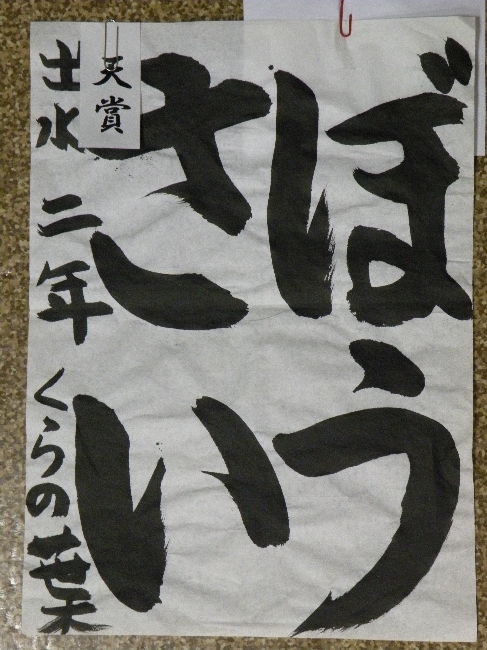 ぼう
さい
天賞
土水 二年 くらの葉